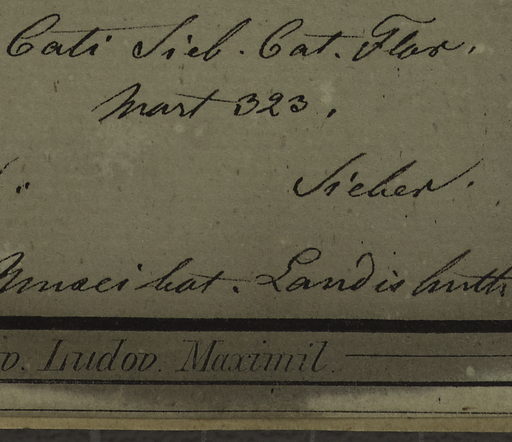 Cati Sieb. Cat. Flor.
Mart 323.
Sieber.
Musei bot. Landishuth
v. Ludov. Maximil.